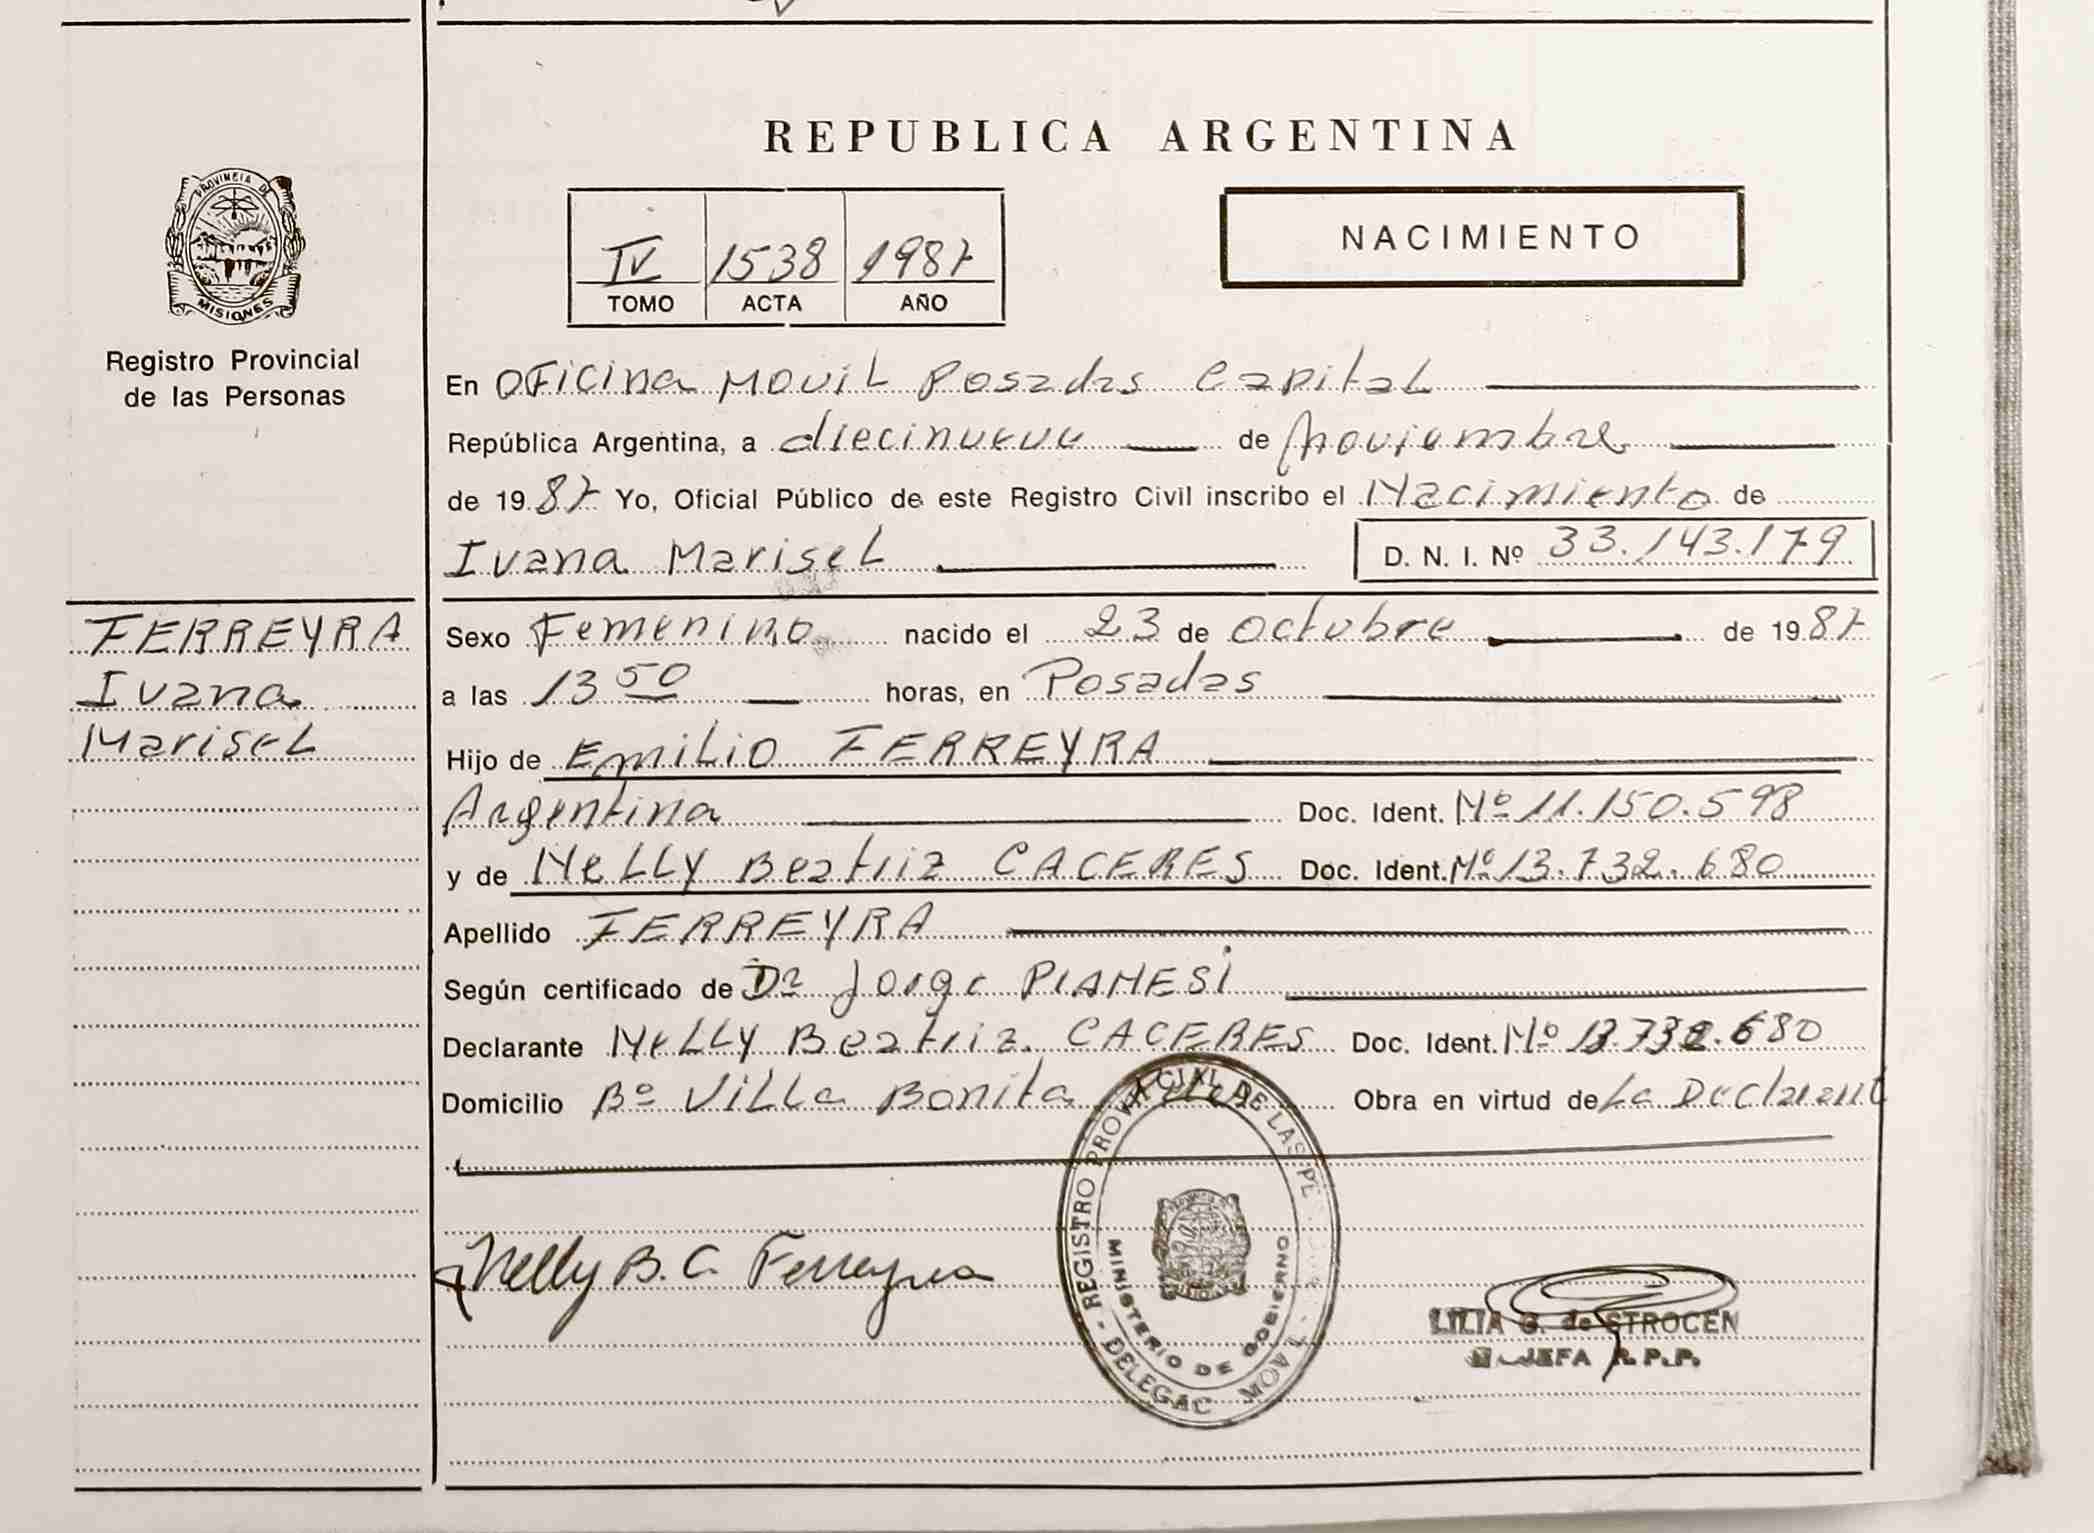 REPUBLICA ARGENTINA
PROVINCIA DE
MISIONES
Registro Provincial
de las Personas
IV 1538 1987
TOMO ACTA AÑO
NACIMIENTO
En Oficina Movil Posadas Capital
República Argentina, a diecinueve de noviembre
de 1987 Yo, Oficial Público de este Registro Civil inscribo el Nacimiento de
Ivana Marisel D. N. I. Nº 33.143.179
FERREYRA
Ivana
Marisel
Sexo Femenino nacido el 23 de octubre de 1987
a las 13 50 horas, en Posadas
Hijo de Emilio FERREYRA
Argentina Doc. Ident. Nº 11.150.598
y de Nelly Beatriz CACERES Doc. Ident. Nº 13.732.680
Apellido FERREYRA
Según certificado de Dr Jorge PIANESI
Declarante Nelly Beatriz CACERES Doc. Ident. Nº 13.732.680
Domicilio Bº Villa Bonita Obra en virtud de La Declarant
Nelly B. C. Ferreyra
REGISTRO PROVINCIAL DE LAS PE
MINISTERIO DE GOBIERNO
DELEGAC MOVIL
LILIA G. de STROCEN
JEFA R.P.P.